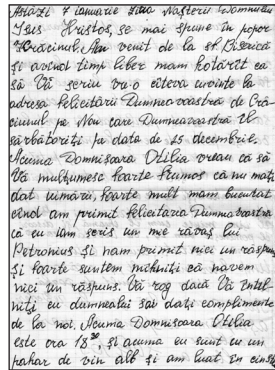 Astăzi 7 ianuarie ziua Nașterii Domnului
Isus Hristos, se mai spune în popor
Crăciunul. Am venit de la sf. Biserică
și avînd timp liber mam hotărît ca
să Vă scriu vr-o cîteva cuvinte la
adresa felicitării Dumneavoastră de Cră-
ciunul pe Nou care Dumneavoastră îl
sărbătoriți pe data de 25 decembrie.
Acuma Domnișoara Otilia vreau că să
Vă mulțumesc foarte frumos că nu mați
dat uitării, foarte mult mam bucurat
cînd am primit felicitarea Dumneavoastră
că eu iam scris un mic răvaș lui
Petronius și nam primit nici un răspuns
și foarte suntem mîhniți că navem
nici un răspuns. Vă rog dacă Vă întîl-
niți cu dumnealui sai dați complimente
de la noi. Acuma Domnișoara Otilia
este ora 18³⁰, și acuma eu sunt cu un
pahar de vin alb și am luat în cinste